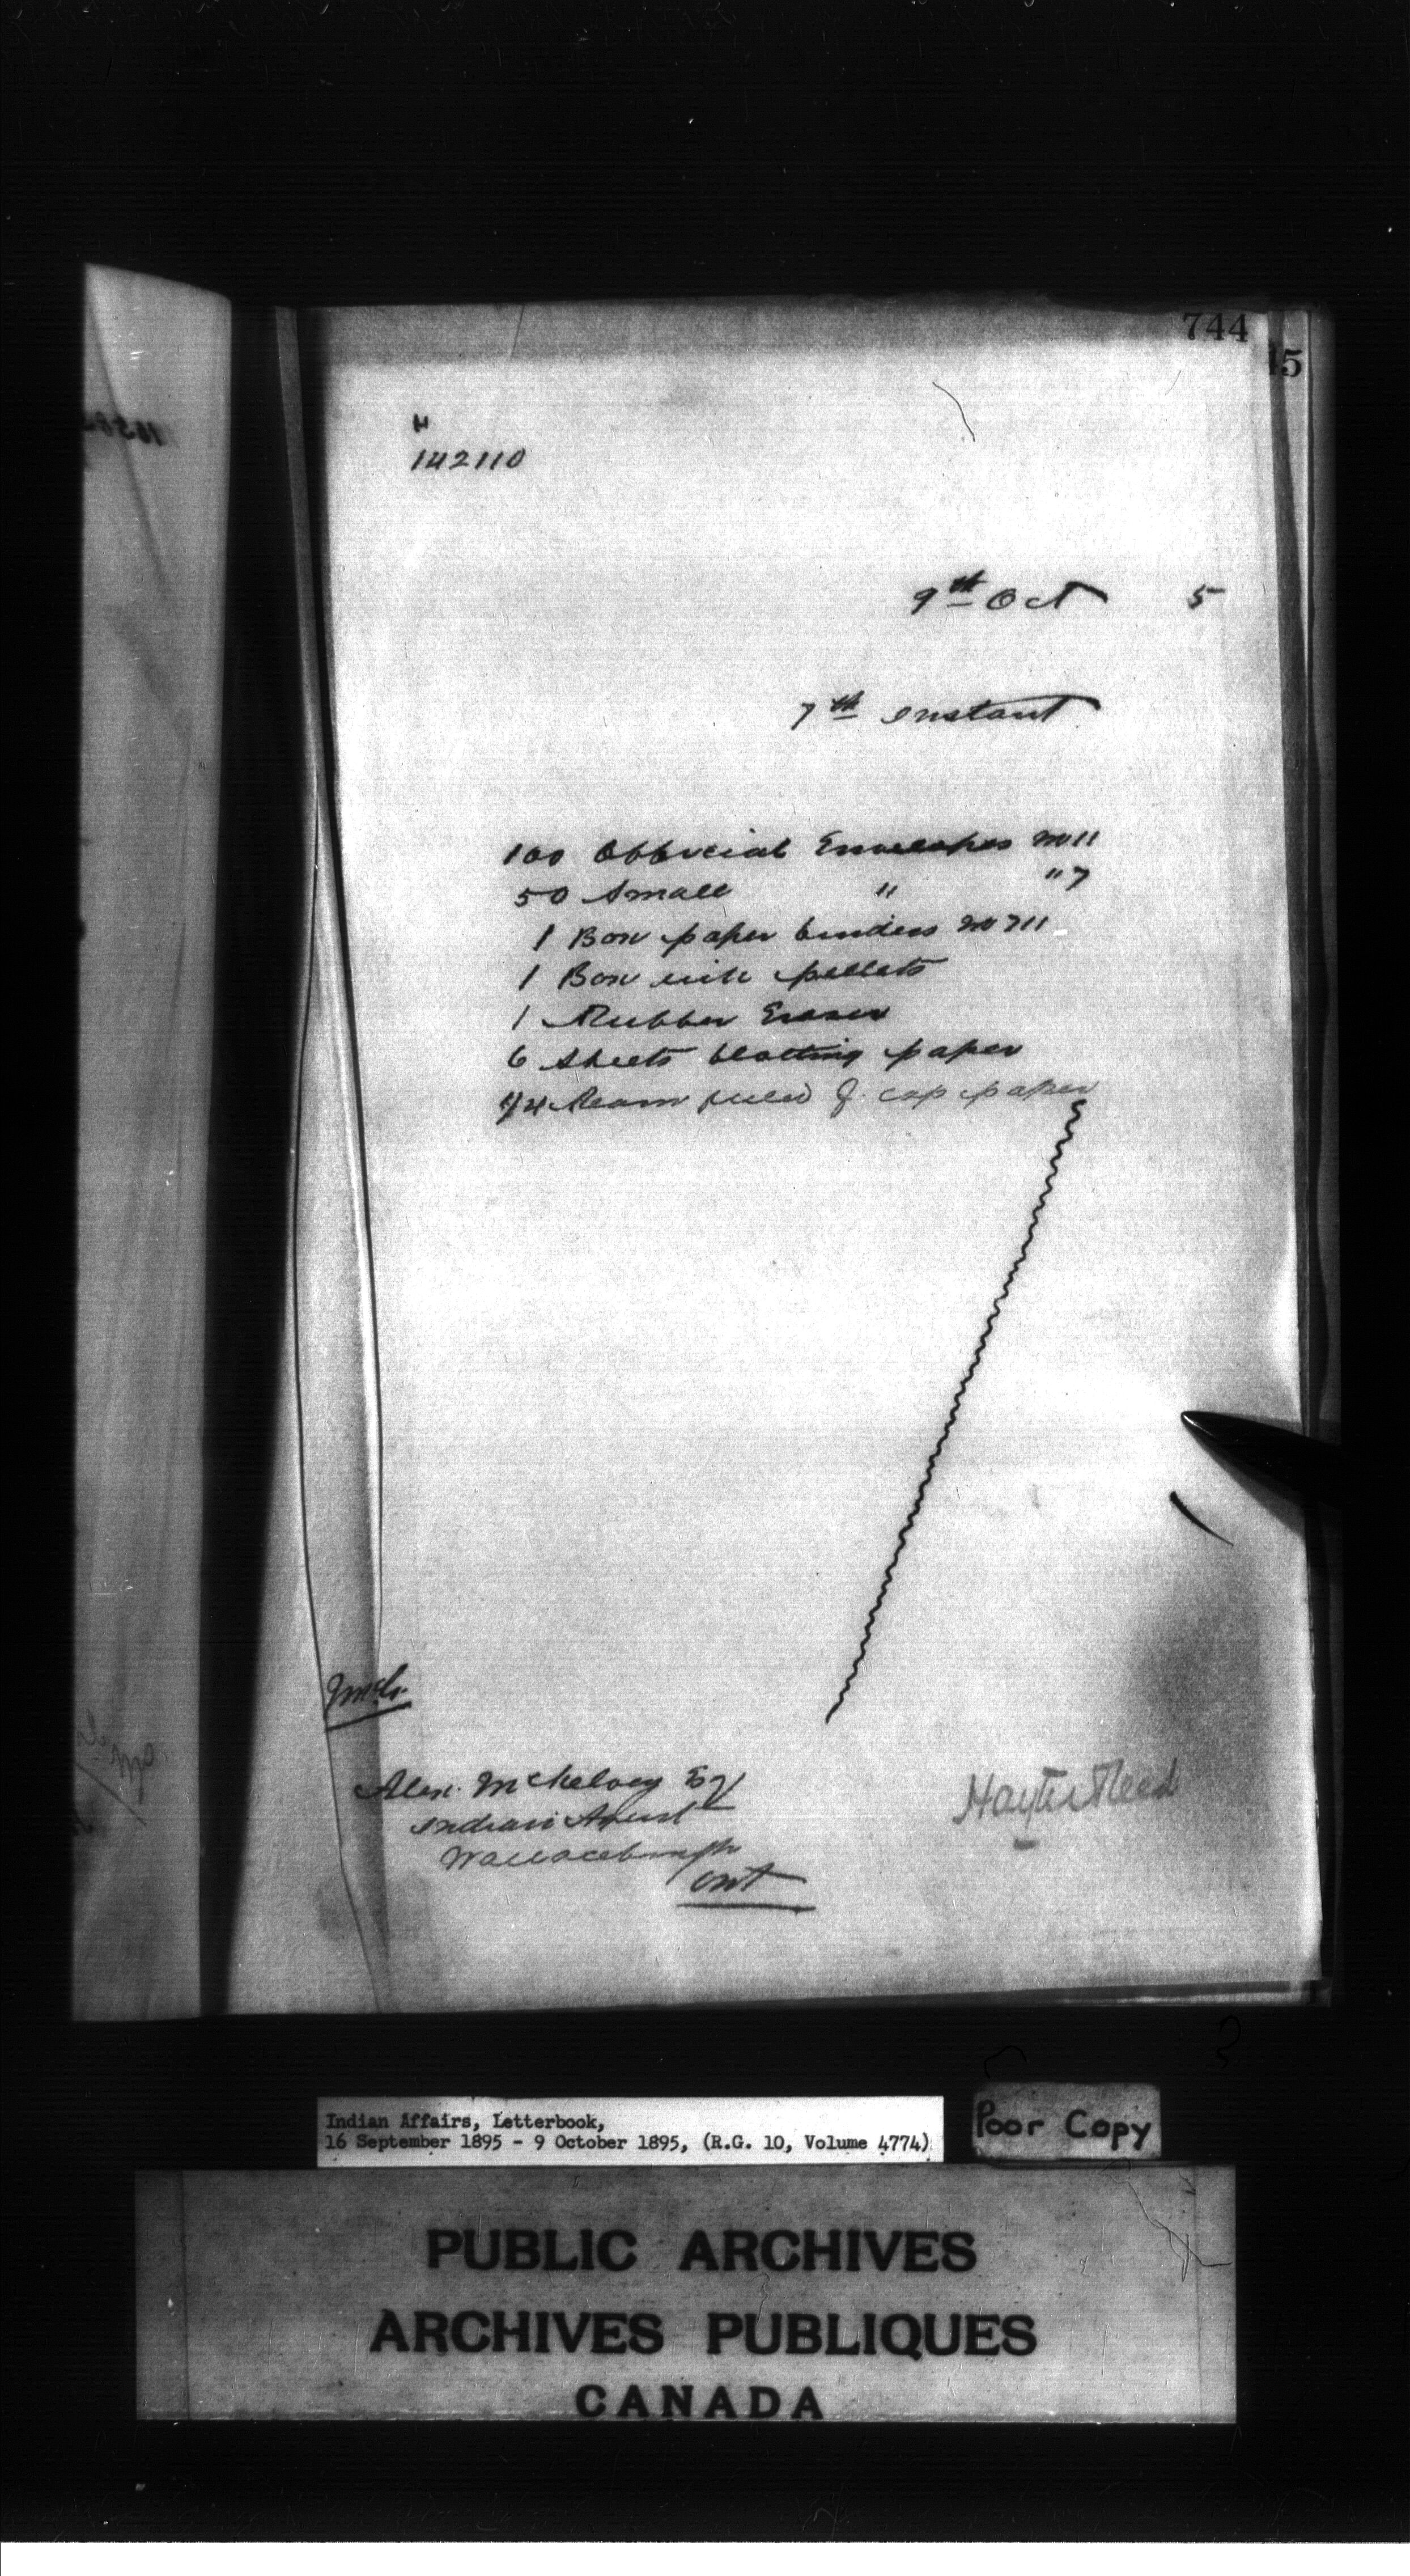 744
45
H
142110
9th Oct 5
7th instant
100 Official Envelopes No 11
50 Small " " 7
1 Box paper binders No 711
1 Box ink pellets
1 Rubber Eraser
6 Sheets blotting paper
1/4 Ream ruled f. cap paper
Alex. McKelvey Esq
Indian Agent
Wallaceburgh
Ont
Hayter Reed
Indian Affairs, Letterbook,
16 September 1895 - 9 October 1895, (R.G. 10, Volume 4774)
Poor Copy
PUBLIC ARCHIVES
ARCHIVES PUBLIQUES
CANADA